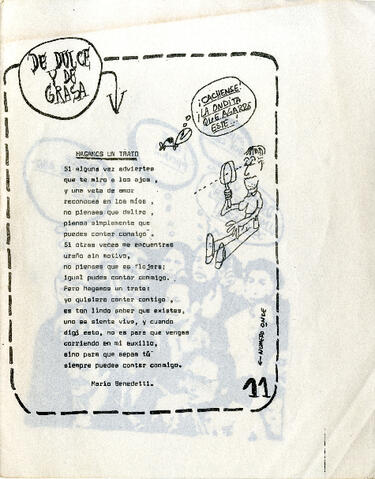 DE DULCE
Y DE
GRASA
¡CACHENSE!
¡LA ONDITA
QUE AGARRO
ESTE...!
HAGAMOS UN TRATO
Si alguna vez adviertes
que te miro a los ojos,
y una veta de amor
reconoces en los míos,
no pienses que deliro,
piensa simplemente que
puedes contar conmigo.
Si otras veces me encuentras
uraño sin motivo,
no pienses que es flojera;
igual puedes contar conmigo.
Pero hagamos un trato:
yo quisiera contar contigo,
es tan lindo saber que existes,
uno se siente vivo, y cuando
digo esto, no es para que vengas
corriendo en mi auxilio,
sino para que sepas tú
siempre puedes contar conmigo.
Mario Benedetti.
← NUMERO ONCE
11